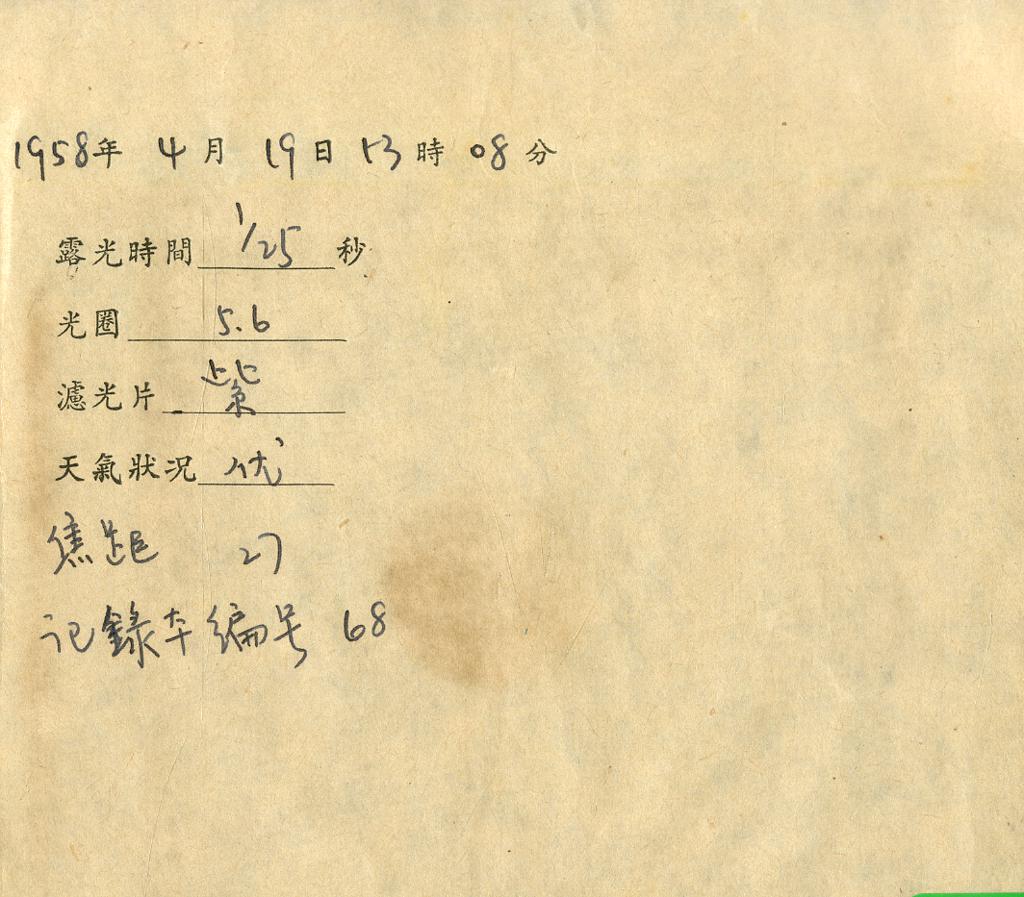 1958年 4月 19日 13時 08分
露光時間 1/25 秒
光圈 5.6
濾光片 紫
天氣狀况 优
焦距 27
记錄本編号 68